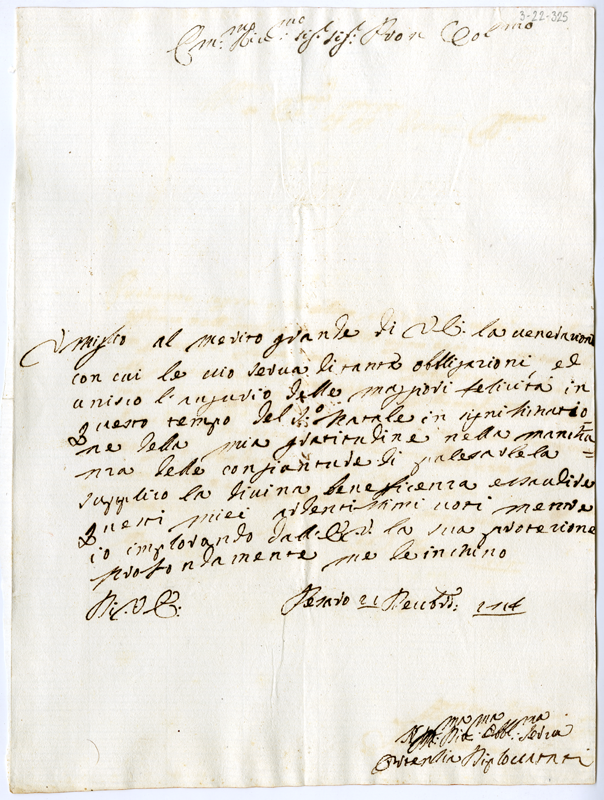 3-22-325
Em.mo Rev.mo Sig.r Sig.r Pron Col.mo
Umilio al merito grande di V. E. la venerazione
con cui le vivo serva di tante obbligazioni, ed
unisco l'augurio delle maggiori felicità in
questo tempo del S.o Natale in significatio=
ne della mia gratitudine nella mancha=
nza delle congionture di palesarle la
supplico la divina beneficenza essaudire
questi miei ardentissimi voti mentre
io implorando dall' E. V. la sua protezione
profondamente me le inchino
Di V. E.
Pesaro 21 Decbre:
Um.ma Div.ma Obbl.ma Serva
Ortentia